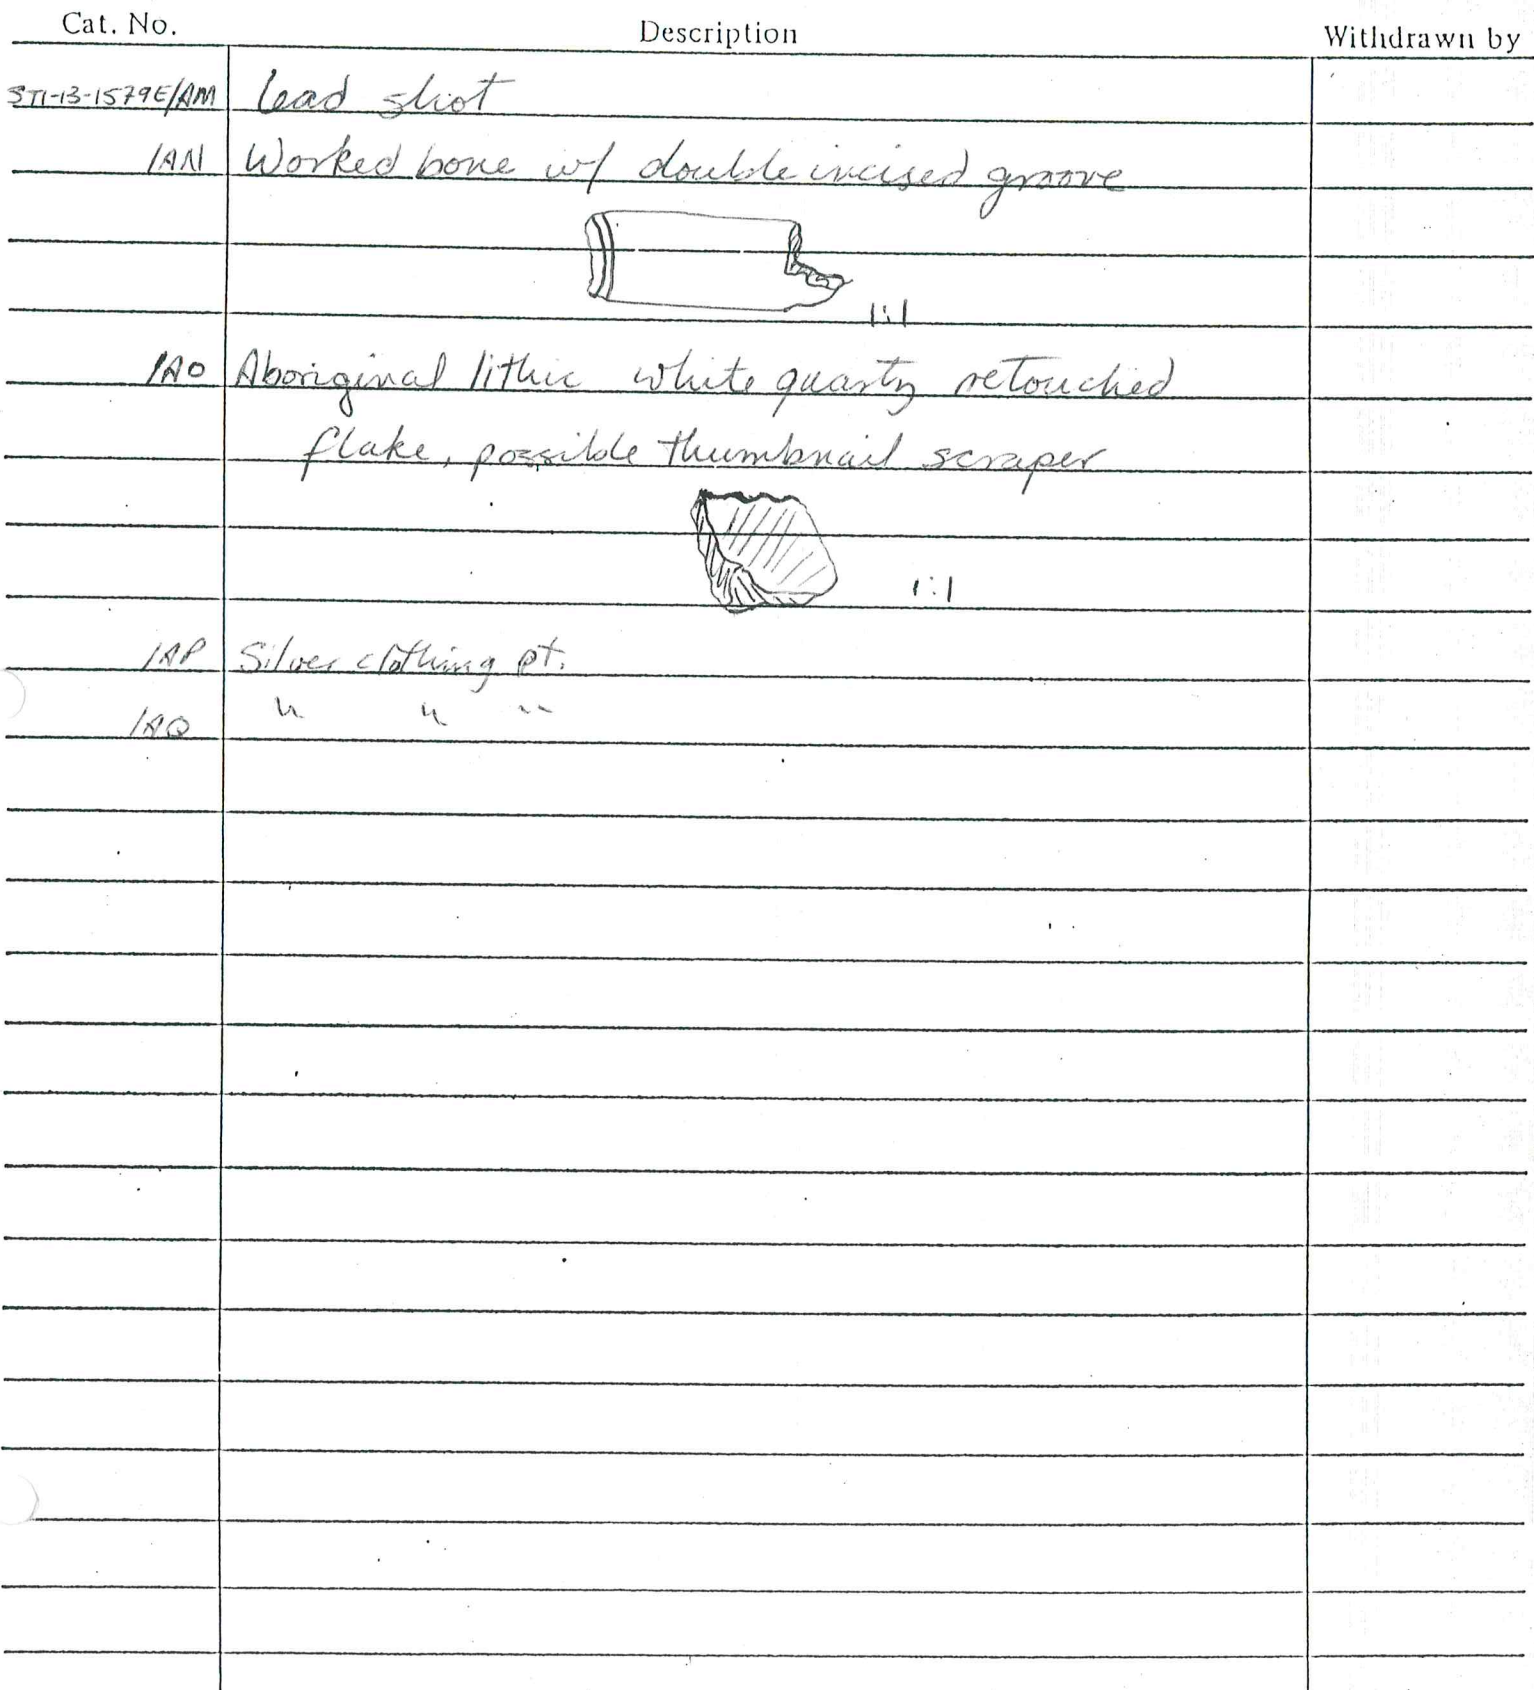 Cat. No. Description Withdrawn by
STI-13-1579E/AM lead shot
/AN Worked bone w/ double incised groove
1:1
/AO Aboriginal lithic white quartz retouched
flake, possible thumbnail scraper
1:1
/AP Silver clothing pt.
/AQ " " "